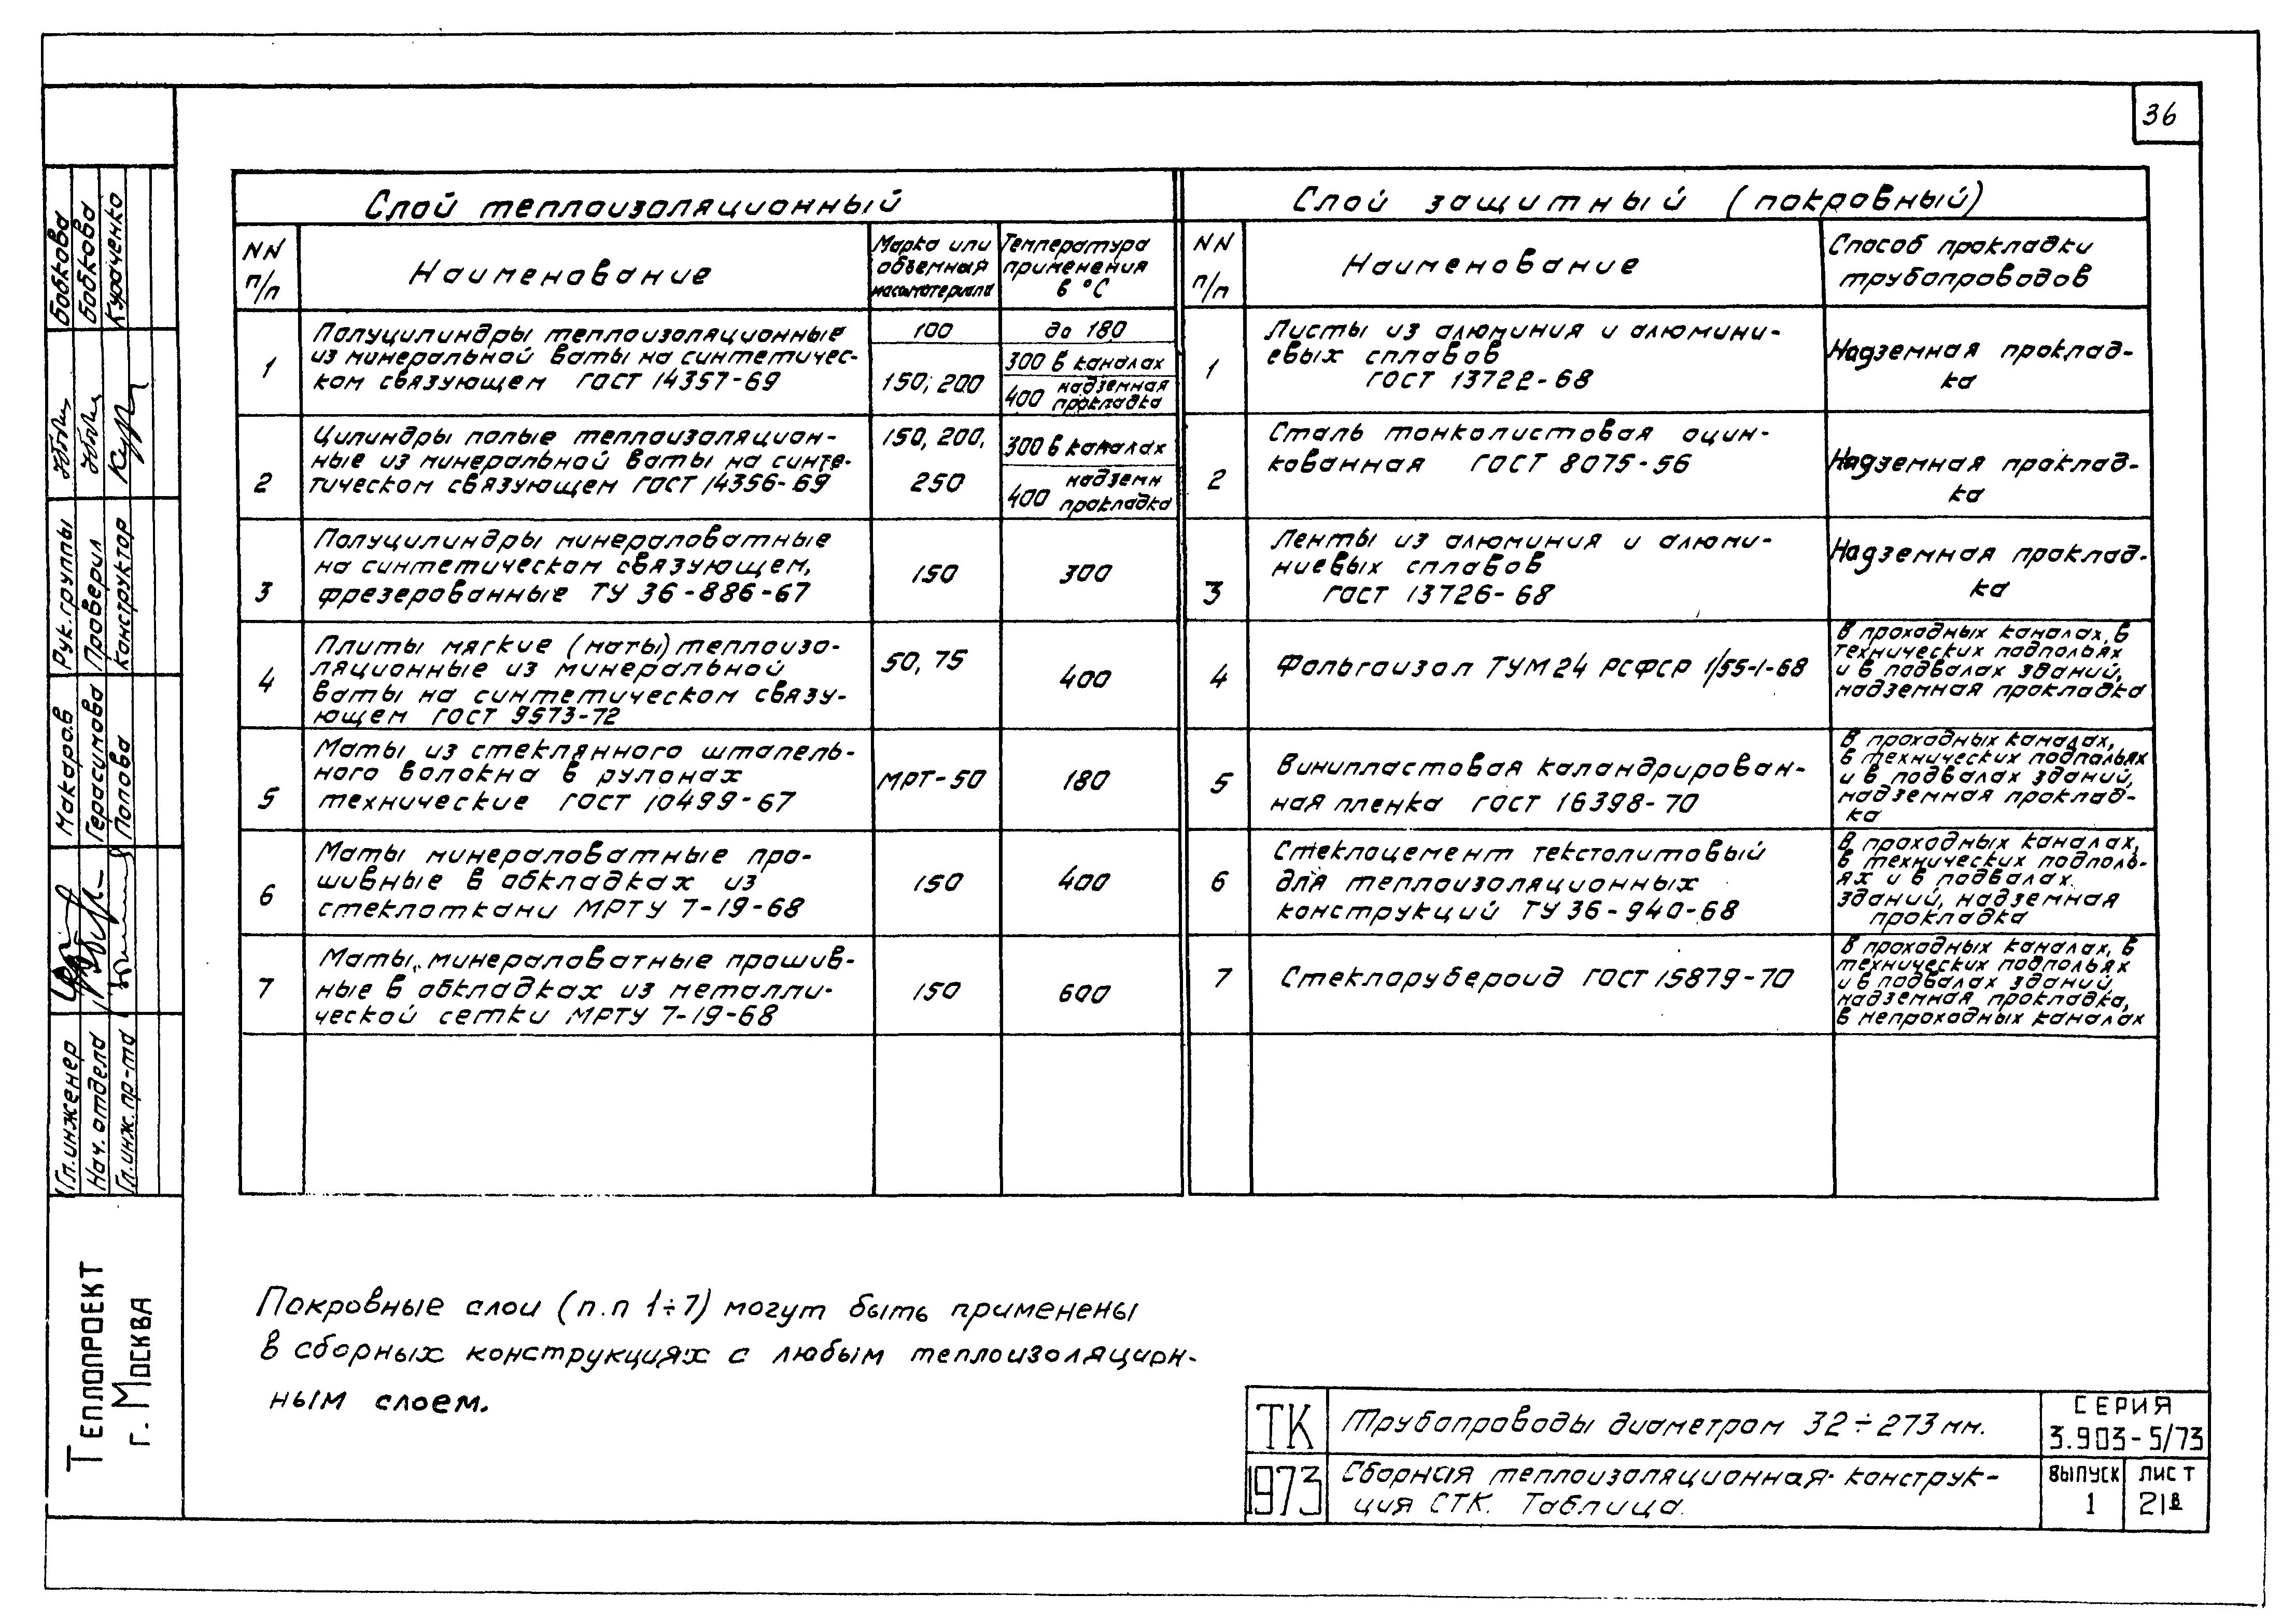 36
Слой теплоизоляционный
NN
п/п
Наименование
Марка или
объемная
масса материала
Температура
применения
в °С
1
Полуцилиндры теплоизоляционные
из минеральной ваты на синтетичес-
ком связующем ГОСТ 14357-69
100
до 180
150; 200
300 в каналах
400 надземная
прокладка
2
Цилиндры полые теплоизоляцион-
ные из минеральной ваты на синте-
тическом связующем ГОСТ 14356-69
150, 200,
250
300 в каналах
400 надземн
прокладка
3
Полуцилиндры минераловатные
на синтетическом связующем,
фрезерованные ТУ 36-886-67
150
300
4
Плиты мягкие (маты) теплоизо-
ляционные из минеральной
ваты на синтетическом связу-
ющем ГОСТ 9573-72
50, 75
400
5
Маты из стеклянного штапель-
ного волокна в рулонах
технические ГОСТ 10499-67
МРТ-50
180
6
Маты минераловатные про-
шивные в обкладках из
стеклоткани МРТУ 7-19-68
150
400
7
Маты минераловатные прошив-
ные в обкладках из металли-
ческой сетки МРТУ 7-19-68
150
600
Слой защитный (покровный)
NN
п/п
Наименование
Способ прокладки
трубопроводов
1
Листы из алюминия и алюмини-
евых сплавов
ГОСТ 13722-68
Надземная проклад-
ка
2
Сталь тонколистовая оцин-
кованная ГОСТ 8075-56
Надземная проклад-
ка
3
Ленты из алюминия и алюми-
ниевых сплавов
ГОСТ 13726-68
Надземная проклад-
ка
4
Фольгоизол ТУМ 24 РСФСР 1/55-1-68
В проходных каналах, в
технических подпольях
и в подвалах зданий,
надземная прокладка
5
Винипластовая каландрирован-
ная пленка ГОСТ 16398-70
В проходных каналах,
в технических подпольях
и в подвалах зданий,
надземная проклад-
ка
6
Стеклоцемент текстолитовый
для теплоизоляционных
конструкций ТУ 36-940-68
В проходных каналах,
в технических подполь-
ях и в подвалах
зданий, надземная
прокладка
7
Стеклорубероид ГОСТ 15879-70
В проходных каналах, в
технических подпольях
и в подвалах зданий
надземная прокладка,
в непроходных каналах
Покровные слои (п.п 1÷7) могут быть применены
в сборных конструкциях с любым теплоизоляцион-
ным слоем.
ТК
1973
Трубопроводы диаметром 32÷273 мм.
Сборная теплоизоляционная конструк-
ция СТК. Таблица.
СЕРИЯ
3.903-5/73
ВЫПУСК
1
ЛИСТ
21в
Гл.инженер
Макаров
Рук.группы
Бобкова
Нач.отдела
Герасимова
Проверил
Бобкова
Гл.инж.пр-та
Попова
Конструктор
Кураченко
ТЕПЛОПРОЕКТ
г. МОСКВА